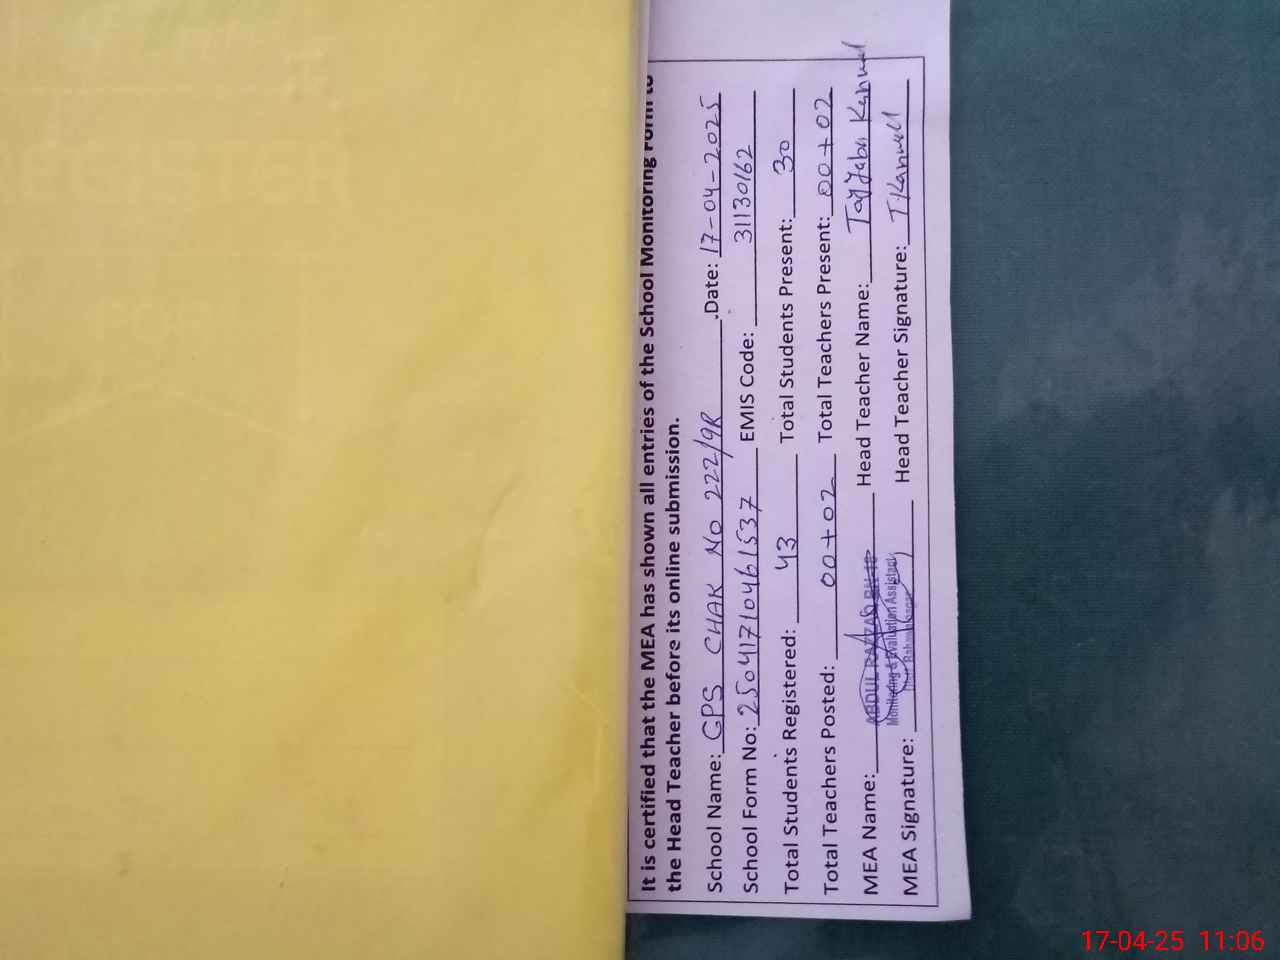 REGISTER
It is certified that the MEA has shown all entries of the School Monitoring Form to
the Head Teacher before its online submission.
School Name: GPS CHAK NO 222/9R Date: 17-04-2025
School Form No: 25041710461537 EMIS Code: 31130162
Total Students Registered: 43 Total Students Present: 30
Total Teachers Posted: 00+02 Total Teachers Present: 00+02
MEA Name: ABDUL RAZZAQ Head Teacher Name: Kanwal
Monitoring & Evaluation Assistant
MEA Signature: Head Teacher Signature: T.Kanwell
17-04-25 11:06